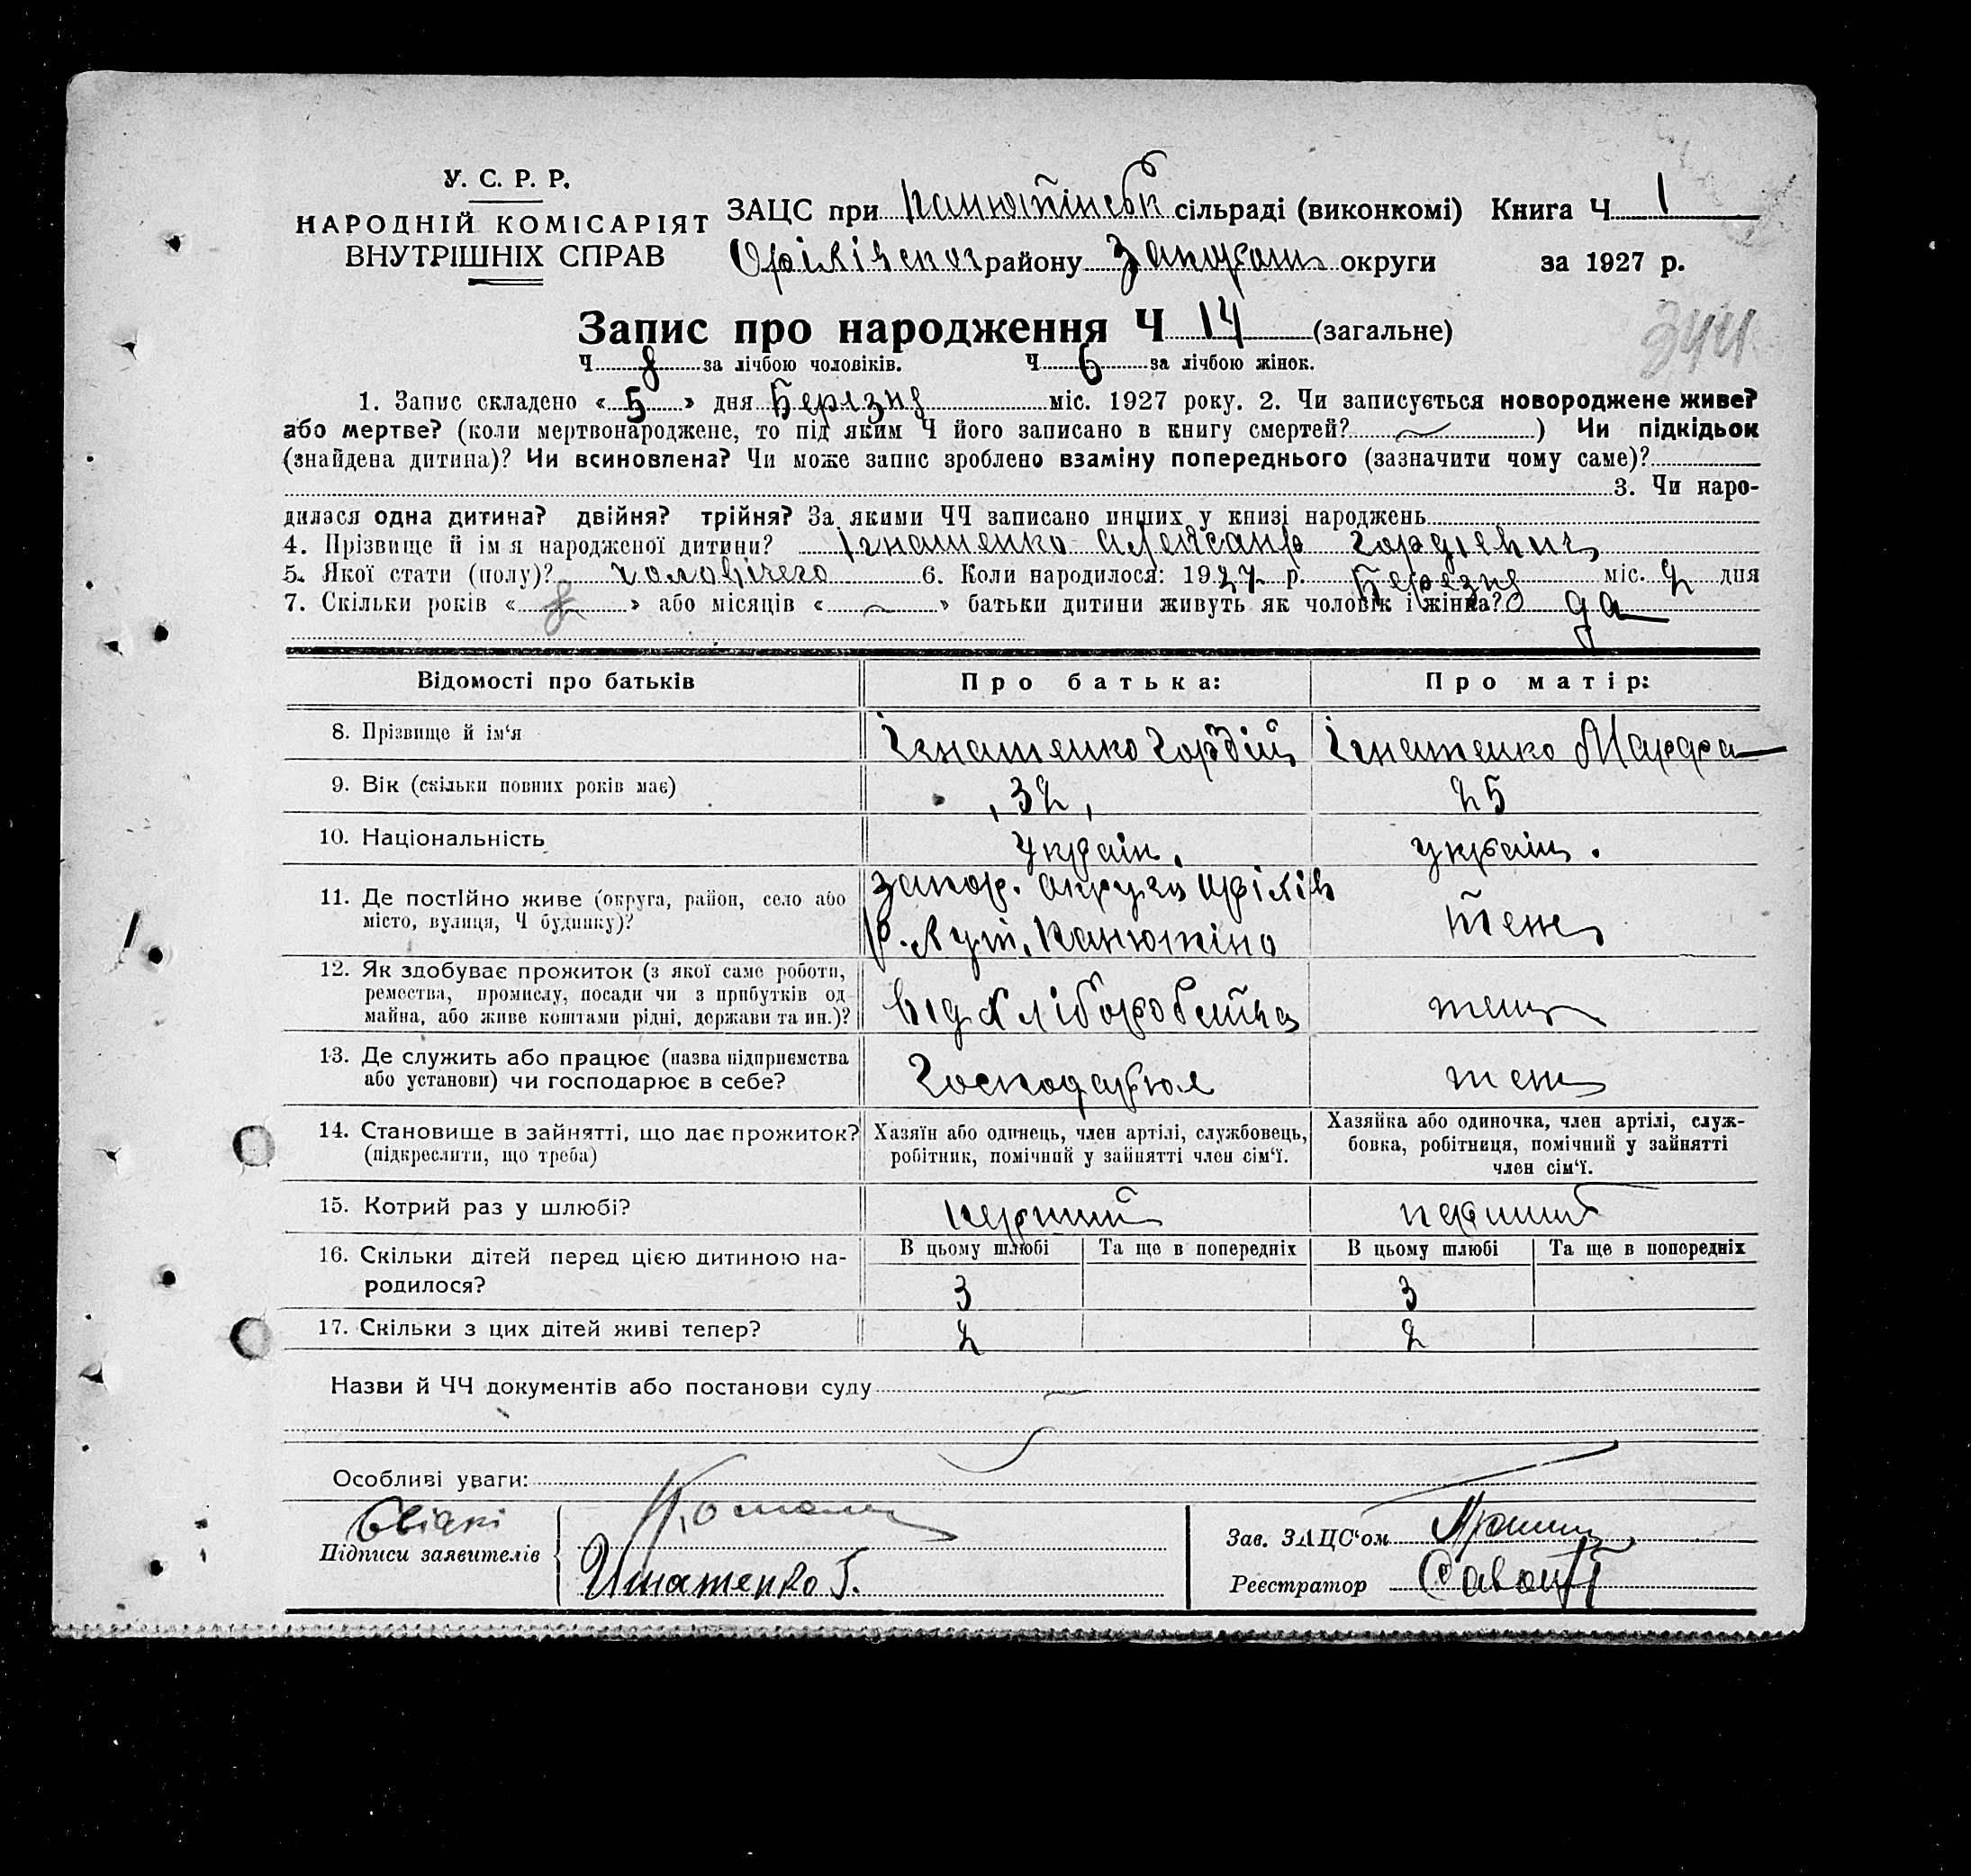 У. С. Р. Р.
НАРОДНІЙ КОМІСАРІЯТ
ВНУТРІШНІХ СПРАВ
ЗАЦС при Канютінськ сільраді (виконкомі) Книга Ч 1
Оріхівског району Запоріж округи за 1927 р.
Запис про народження Ч 14 (загальне)
344
Ч 8 за лічбою чоловіків. Ч 6 за лічбою жінок.
1. Запис складено « 5 » дня Березня міс. 1927 року. 2. Чи записується новороджене живе?
або мертве? (коли мертвонароджене, то під яким Ч його записано в книгу смертей? ) Чи підкідьок
(знайдена дитина)? Чи всиновлена? Чи може запис зроблено взаміну попереднього (зазначити чому саме)?
3. Чи наро-
дилася одна дитина? двійня? трійня? За якими ЧЧ записано инших у книзі народжень
4. Прізвище й ім я народженої дитини? Ігнатенко Алексанр Гордієвич
5. Якої стати (полу)? чоловічего 6. Коли народилося: 1927 р. Березня міс. 2 дня
7. Скільки років « 8 » або місяців « » батьки дитини живуть як чоловік і жінка? да
Відомості про батьків Про батька: Про матір:
8. Прізвище й ім'я Ігнатенко Гордій Ігнатенко Марфа
9. Вік (скільки повних років має) 32 25
10. Національність украін. украін.
11. Де постІйно живе (округа, район, село або запор. округи оріхів
місто, вулиця, Ч будинку)? р. хут. Канютіно теж
12. Як здобуває прожиток (з якої саме роботи,
ремества, промислу, посади чи з прибутків од від хліборобства теж
майна, або живе коштами рідні, держави та ин.)?
13. Де служить або працює (назва підприємства
або установи) чи господарює в себе? Господарює теж
14. Становище в зайнятті, що дає прожиток? Хазяїн або одинець, член артілі, службовець, Хазяйка або одиночка, член артілі, служ-
(підкреслити, що треба) робітник, помічний у зайнятті член сім'ї. бовка, робітниця, помічний у зайнятті
член сім'ї.
15. Котрий раз у шлюбі? перший перший
16. Скільки дітей перед цією дитиною на- В цьому шлюбі Та ще в попередніх В цьому шлюбі Та ще в попередніх
родилося? 3 3
17. Скільки з цих дітей живі тепер? 2 2
Назви й ЧЧ документів або постанови суду
Особливі уваги:
Свідкі
Підписи заявителів
Игнатенко Г.
Зав. ЗАЦС'ом
Реєстратор